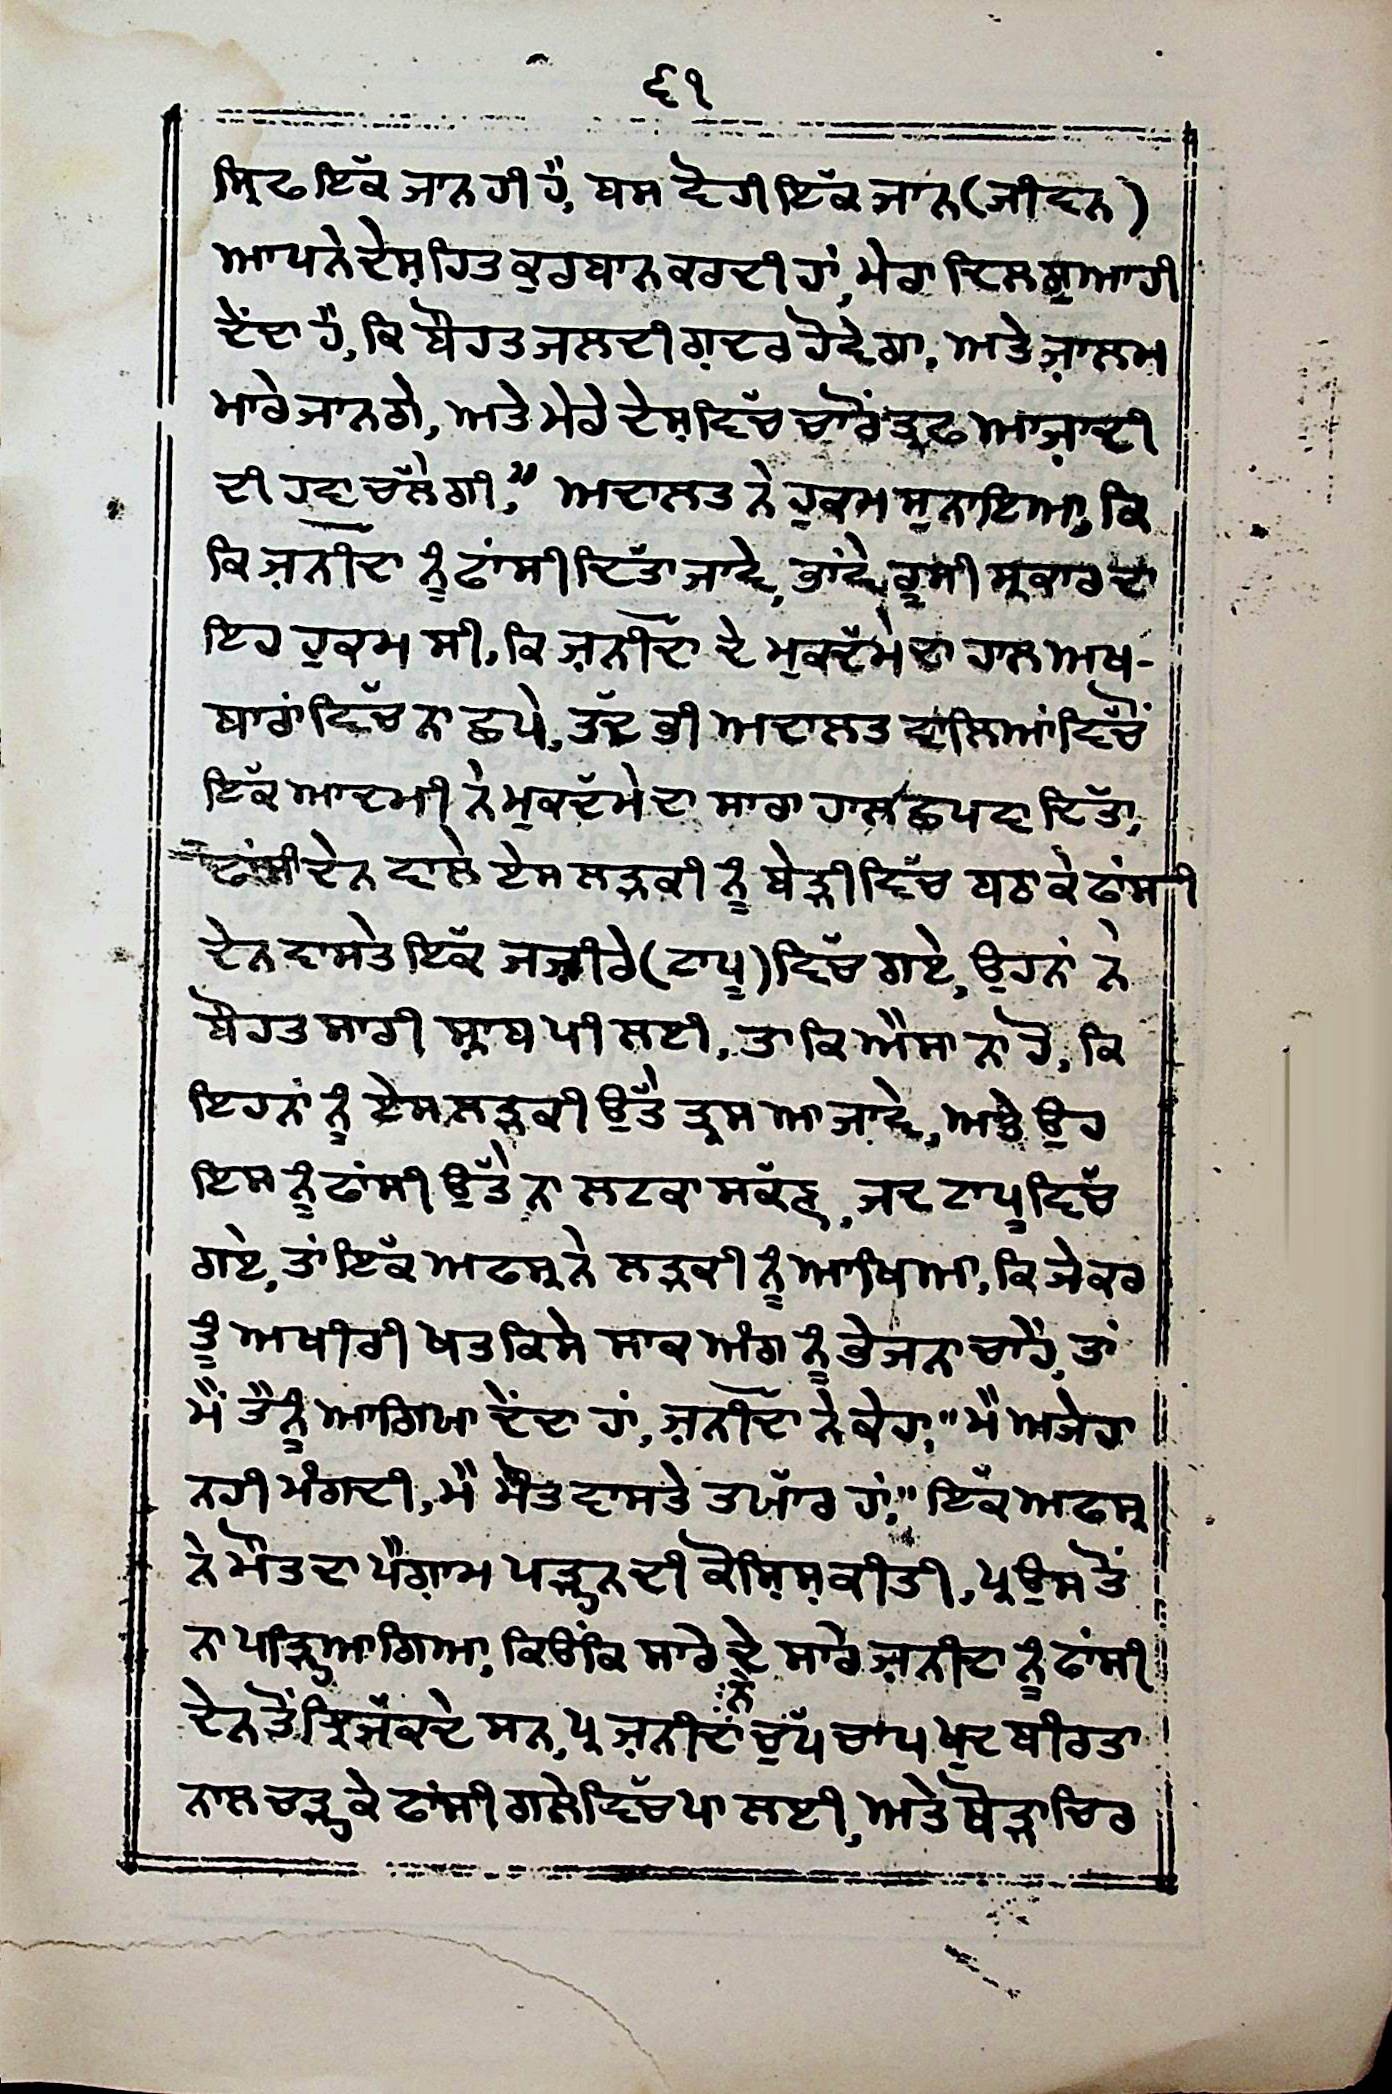 ੬੧
ਸ੍ਰਿਫ ਇੱਕ ਜਾਨ ਹੀ ਹੈ, ਬਸ ਏਹੀ ਇੱਕ ਜਾਨ (ਜੀਵਨ)
ਆਪਨੇ ਦੇਸ਼ ਹਿਤ ਕੁਰਬਾਨ ਕਰਦੀ ਹਾਂ, ਮੇਰਾ ਦਿਲ ਗੁਆਹੀ
ਦੇਂਦਾ ਹੈ, ਕਿ ਬੌਹਤ ਜਲਦੀ ਗ਼ਦਰ ਹੋਵੇਗਾ, ਅਤੇ ਜ਼ਾਲਮ
ਮਾਰੇ ਜਾਨਗੇ, ਅਤੇ ਮੇਰੇ ਦੇਸ਼ ਵਿੱਚ ਚਾਰੋਂ ਤ੍ਰਫ ਆਜ਼ਾਦੀ
ਦੀ ਹਵਾ ਚੱਲੇਗੀ," ਅਦਾਲਤ ਨੇ ਹੁਕਮ ਸੁਨਾਇਆ, ਕਿ
ਕਿ ਜ਼ਨੀਦਾ ਨੂੰ ਫਾਂਸੀ ਦਿੱਤਾ ਜਾਵੇ, ਭਾਂਵੇ ਰੂਸੀ ਸ੍ਰਕਾਰ ਦਾ
ਇਹ ਹੁਕਮ ਸੀ, ਕਿ ਜ਼ਨੀਦਾ ਦੇ ਮੁਕਦੱਮੇ ਦਾ ਹਾਲ ਅਖ-
ਬਾਰਾਂ ਵਿੱਚ ਨਾ ਛਪੇ, ਤੱਦ ਭੀ ਅਦਾਲਤ ਵਾਲਿਆਂ ਵਿੱਚੋਂ
ਇੱਕ ਆਦਮੀ ਨੇ ਮੁਕਦੱਮੇ ਦਾ ਸਾਰਾ ਹਾਲ ਛਪਵਾ ਦਿੱਤਾ,
ਫਾਂਸੀ ਦੇਨ ਵਾਲੇ ਏਸ ਲੜਕੀ ਨੂੰ ਬੇੜੀ ਵਿੱਚ ਬਠਾਕੇ ਫਾਂਸੀ
ਦੇਨ ਵਾਸਤੇ ਇੱਕ ਜਜ਼ੀਰੇ (ਟਾਪੂ) ਵਿੱਚ ਗਏ, ਉਹਨਾਂ ਨੇ
ਬੌਹਤ ਸਾਰੀ ਸ਼੍ਰਾਬ ਪੀ ਲਈ, ਤਾ ਕਿ ਐਸਾ ਨਾ ਹੋ, ਕਿ
ਇਹਨਾਂ ਨੂੰ ਏਸ ਲੜਕੀ ਉੱਤੇ ਤ੍ਰਸ ਆ ਜਾਵੇ, ਅਤੇ ਉਹ
ਇਸ ਨੂੰ ਫਾਂਸੀ ਉੱਤੇ ਨਾ ਲਟਕਾ ਸਕੱਣ, ਜਦ ਟਾਪੂ ਵਿੱਚ
ਗਏ, ਤਾਂ ਇੱਕ ਅਫਸ੍ਰ ਨੇ ਲੜਕੀ ਨੂੰ ਆਖਿਆ, ਕਿ ਜੇਕਰ
ਤੂੰ ਅਖੀਰੀ ਖਤ ਕਿਸੇ ਸਾਕ ਅੰਗ ਨੂੰ ਭੇਜਨਾ ਚਾਹੇਂ, ਤਾਂ
ਮੈਂ ਤੈਨੂੰ ਆਗਿਯਾ ਦੇਂਦਾ ਹਾਂ, ਜ਼ਨੀਦਾ ਨੇ ਕੇਹਾ, "ਮੈਂ ਅਜੇਹਾ
ਨਹੀ ਮੰਗਦੀ, ਮੈਂ ਮੌਤ ਵਾਸਤੇ ਤਯਾੱਰ ਹਾਂ," ਇੱਕ ਅਫਸ੍ਰ
ਨੇ ਮੌਤ ਦਾ ਪੈਗ਼ਾਮ ਪੜ੍ਹਨ ਦੀ ਕੋਸ਼ਿਸ਼ ਕੀਤੀ, ਪ੍ਰ ਉਸ ਤੋਂ
ਨਾ ਪੜ੍ਹਿਆ ਗਿਆ, ਕਿਉਂਕਿ ਸਾਰੇ ਦੇ ਸਾਰੇ ਜ਼ਨੀਦਾ ਨੂੰ ਫਾਂਸੀ
ਦੇਨ ਤੋਂ ਝਿਜੱਕਦੇ ਸਨ, ਪ੍ਰ ਜ਼ਨੀਦਾ ਨੇ ਚੁੱਪ ਚਾਪ ਖ਼ੁਦ ਬੀਰਤਾ
ਨਾਲ ਚੜ੍ਹ ਕੇ ਫਾਂਸੀ ਗਲੇ ਵਿੱਚ ਪਾ ਲਈ, ਅਤੇ ਥੋੜਾ ਚਿਰ